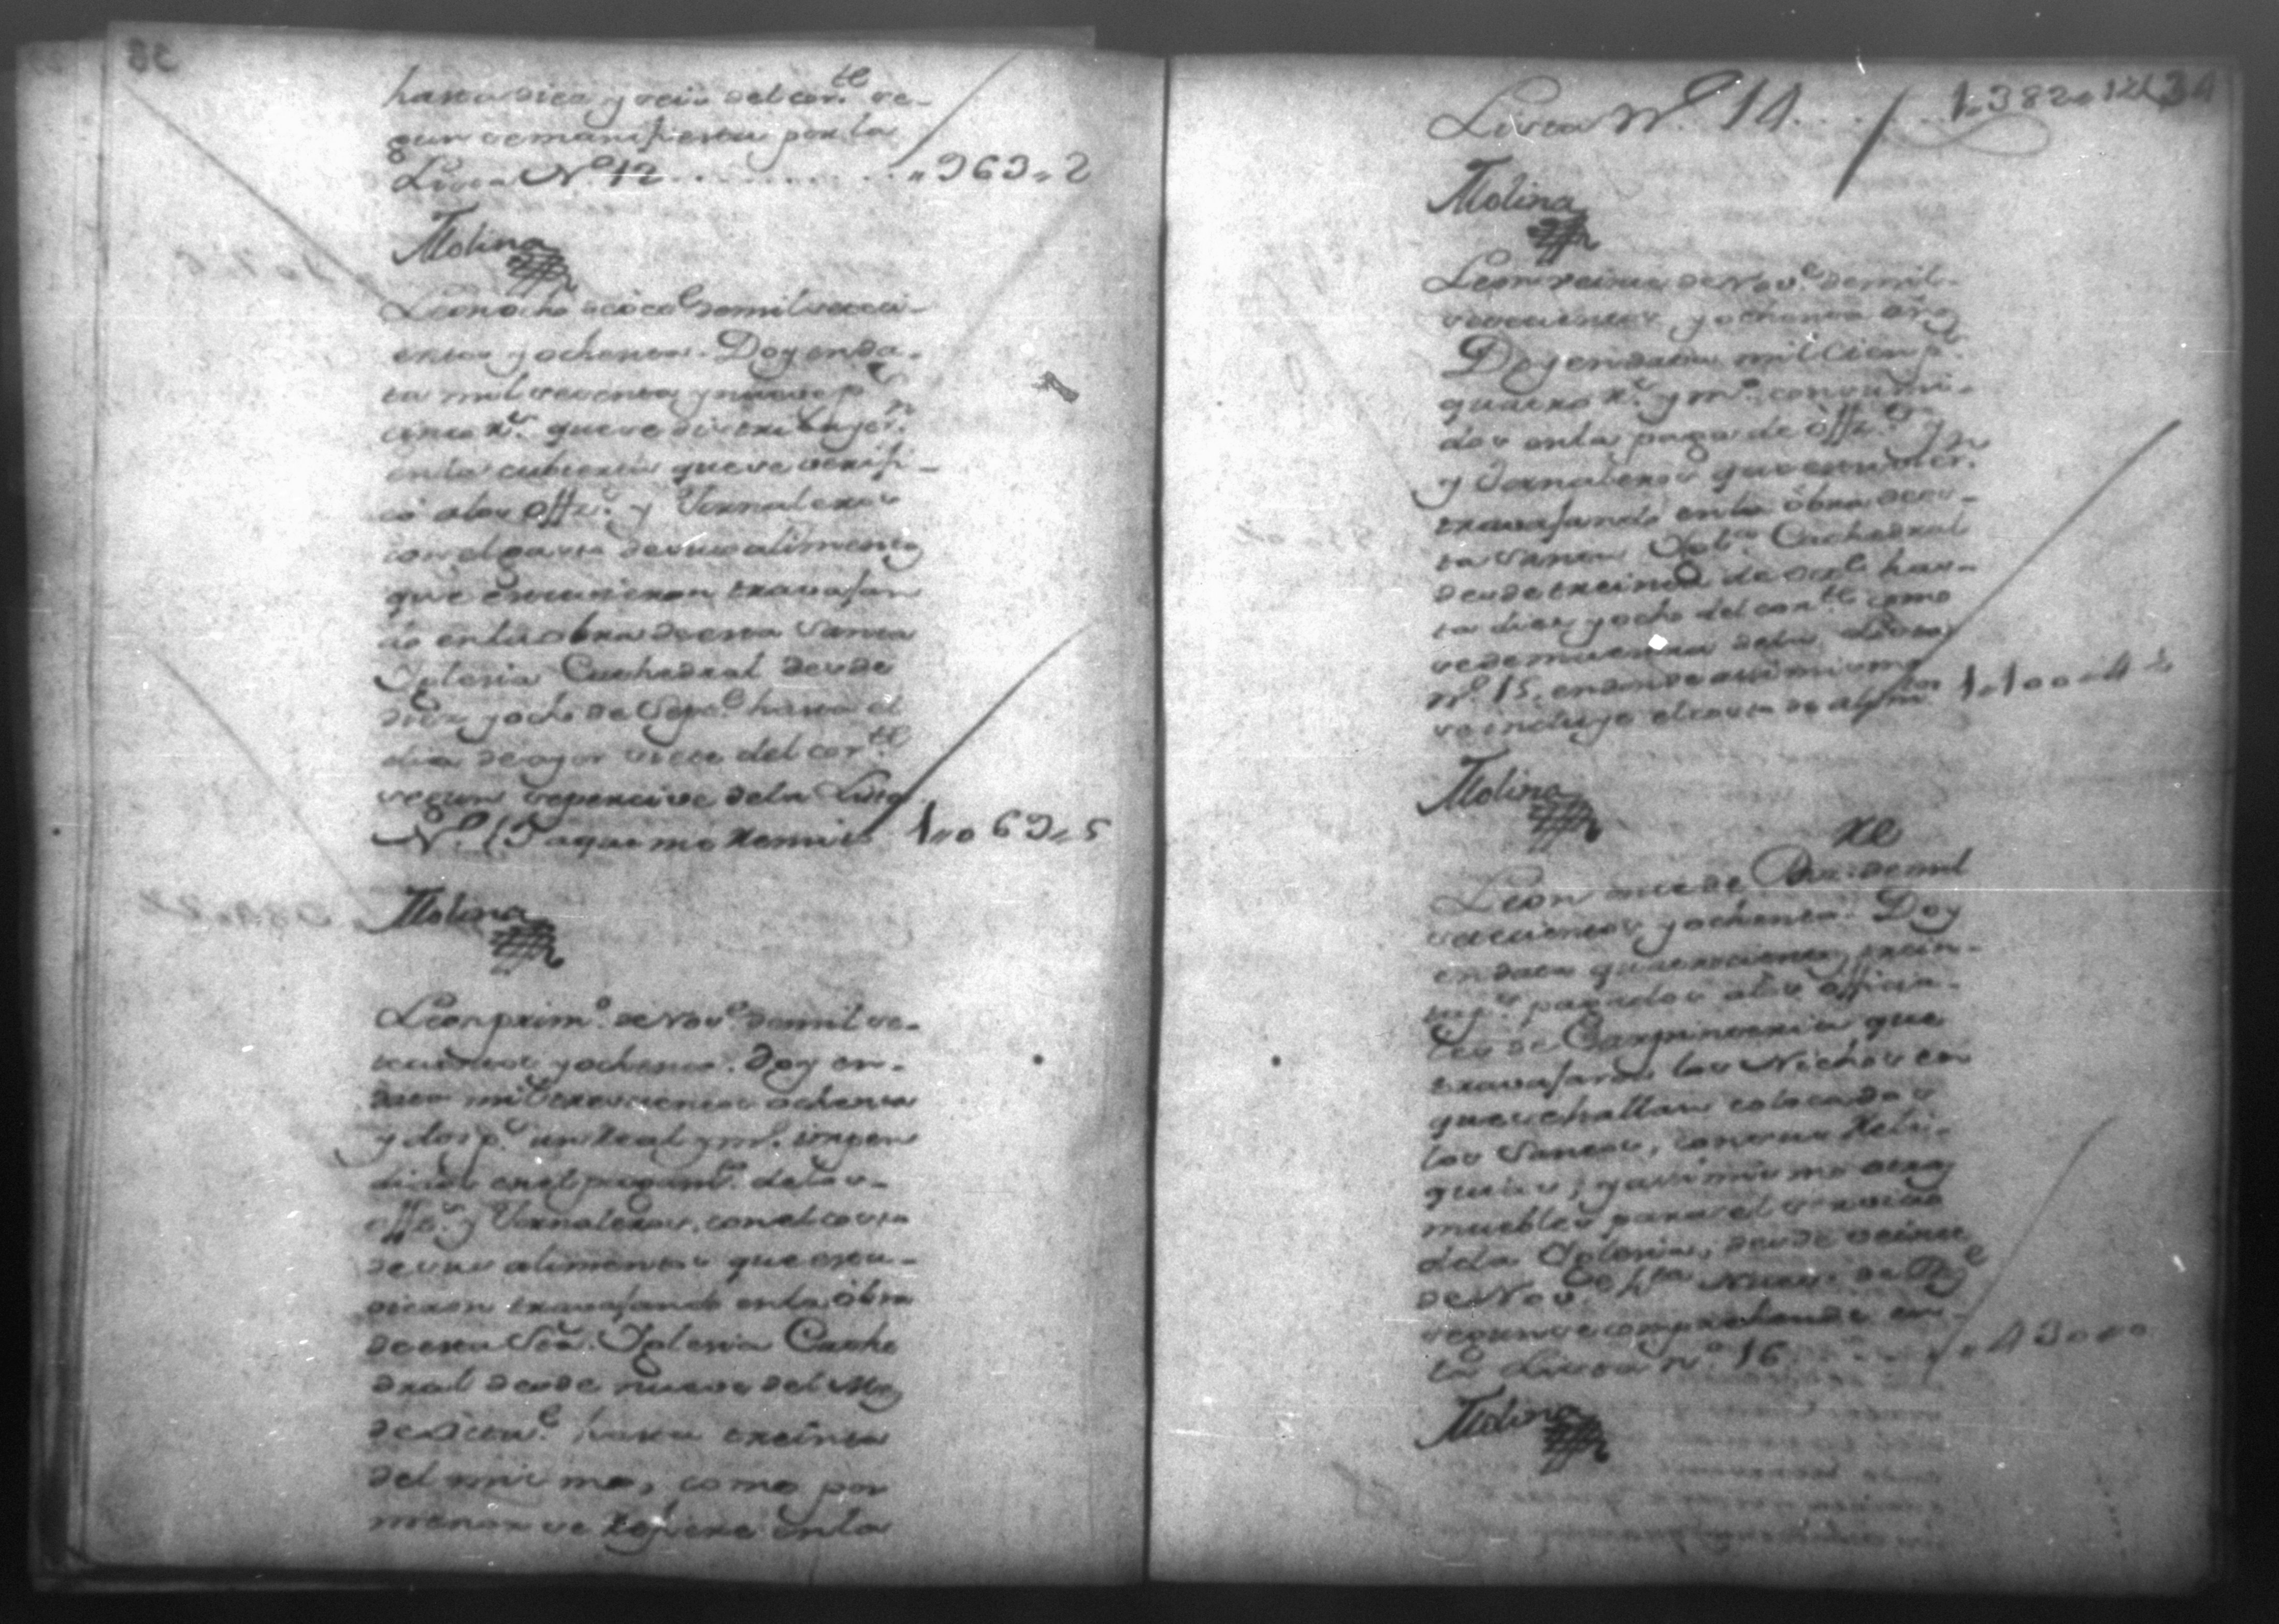 hasta diez y seis del cor.te se-
gun se manifiesta por la
Lista N.o 12 . . . . . . . . . . „ 969 „ 2
Molina
Leon ocho de oct.e de mil seteci-
entos y ochenta. Doy en da-
ta mil sesenta y nueve p.s
cinco r.s que se distribuyer.n
en la cubierta que se verifi-
có a los offiz.s y Jornaleros
con el gasto de sus alimentos
que estuvieron travajan
do en la obra de esta Santa
Iglesia Cathedral desde
diez y ocho de Sep.e hasta el
dia de ayer siete del cor.te
segun se percive de la Lista
N.o 13 a que me remito 1 „ 069 „ 5
Molina
Leon prim.o de Nov.e de mil se-
tecientos y ochenta. Doy en-
data mil trescientos ochenta
y dos p.s un real y m.o impen
didos en el pagam.to de los-
offiz.s y Jornaleros, con el costo
de sus alimentos que estu-
vieron travajando en la obra
de esta S.ta Iglesia Cathe
dral desde nueve del Mes
de Octu.e hasta treinta
del mismo, como por
menor se refiere en la
34
Lista N.o 14 . . . . . . . 1 „ 382 „ 1 ½
Molina
Leon veinte de Nov.e de mil-
setecientos y ochenta años
Doy en data mil Cien p.s
quatro r.s y m.o consumi-
dos en la paga de offiz.s
y Jornaleros que estuvier.n
travajando en la obra de es-
ta Santa Igl.a Cathedral
desde treinta de Oct.e has-
ta diez y ocho del cor.te como
se demuestra de la Lista
N.o 15. en donde asimismo
se incluye el costo de alim.tos 1 „ 100 „ 4 ½
Molina
Leon nueve de Dix.re de mil
setecientos y ochenta. Doy
en data quatrocientos, trein-
ta p.s pagados a los officia-
les de Carpinteria que
travajaron los Nichos en
que se hallan colocados
los Santos, con sus Reli-
quias, y asi mismo otros
muebles para el servicio
de la Iglesia, desde veinte
de Nov.e h.ta Nueve de Diz.e
segun se comprehende en-
la Lista n.o 16 . . . . . „ 430 „ 0
Molina